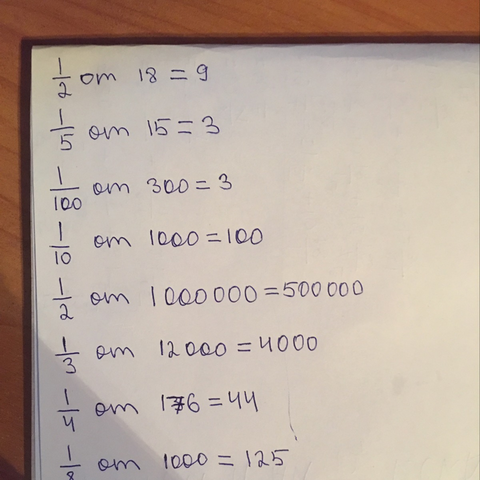 1/2 от 18 = 9
1/5 от 15 = 3
1/100 от 300 = 3
1/10 от 1000 = 100
1/2 от 1000000 = 500000
1/3 от 12000 = 4000
1/4 от 176 = 44
1/8 от 1000 = 125